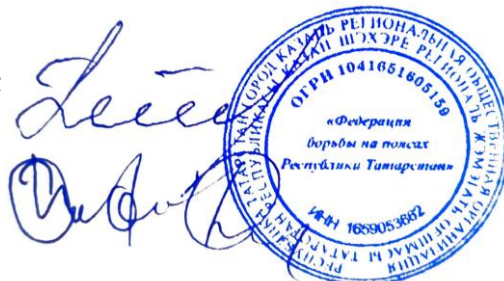 РЕСПУБЛИКА ТАТАРСТАН ГОРОД КАЗАНЬ РЕГИОНАЛЬНАЯ ОБЩЕСТВЕННАЯ ОРГАНИЗАЦИЯ
ТАТАРСТАН РЕСПУБЛИКАСЫ КАЗАН ШӘҺӘРЕ РЕГИОНАЛЬ ҖӘМӘГАТЬ ОЕШМАСЫ
ОГРН 1041651605159
«Федерация
борьбы на поясах
Республики Татарстан»
ИНН 1659053682